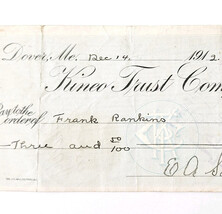 Dover, Me. Dec 14. 1912
Kineo Trust Com
Pay to the
order of Frank Rankins
Three and 50/100
E A